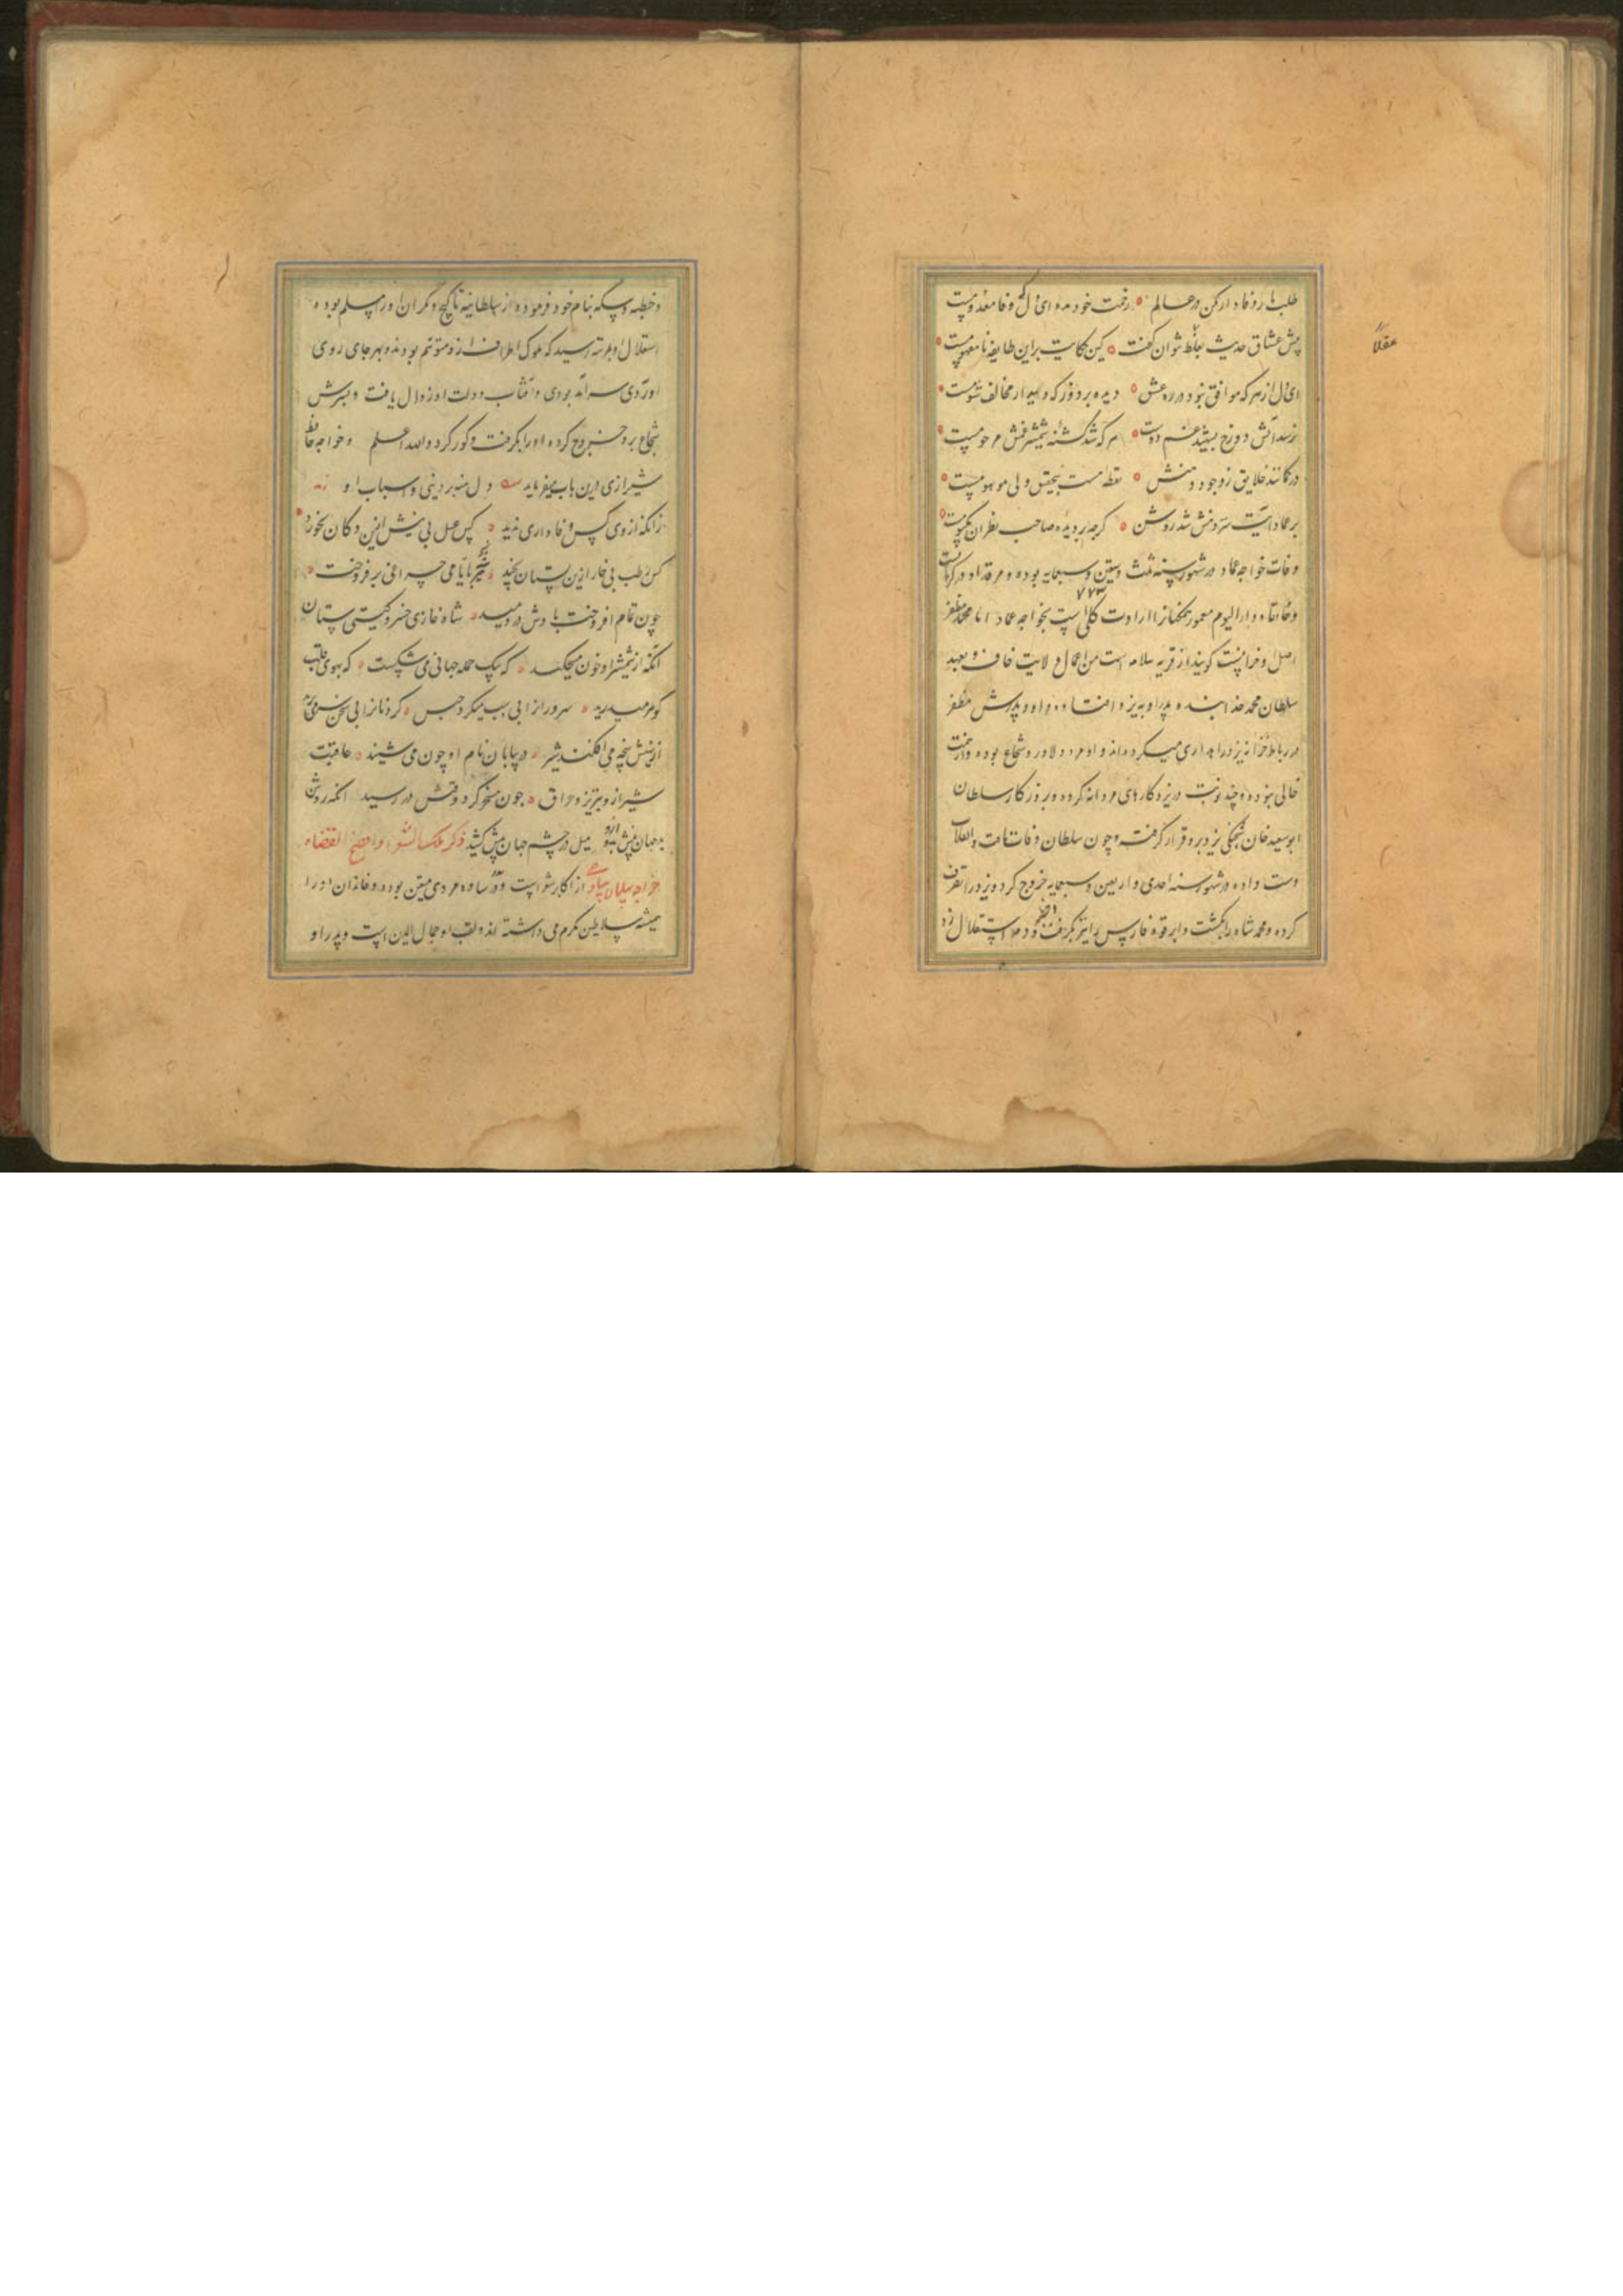 طلب یار وفادار مکن در عالم ۰ زحمت خود مده ای دل که وفا معدومست
پیش عشاق حدیث بغلط نتوان گفت ۰ کین حکایت بر این طایفه نامفهومست
ای دل از هر که موافق نبود در ره عشق ۰ دیده بردوز که دیدار مخالف شومست
نرسد آتش دوزخ بشهید غم دوست ۰ هر که شد کشته شمشیر غمش مرحومست
در کمانند خلایق ز وجود دهنش ۰ نقطه هست بتحقیق ولی موهومست
بر عماد آیت سر دهنش شد روشن ۰ کرچه بر دیده صاحب نظران مکتومست
وفات خواجه عماد در شهور سنه ثلث وسبعین وسبعمایه بوده و مرقد او در کرمانست
۷۷۳
وخانقاه و دار الیوم معمور همکنانرا ارادت کلی است بخواجه عماد اما محمد مظفر
اصل او خراسانیست کویند از قریه سلامه است من اعمال ولایت خاف و بعهد
سلطان محمد خدابنده پدر او به یزد افتاد و او و پدرش مظفر
در رباط خزانه یزد راهداری میکرده‌اند و او مرد دلاور و شجاع بوده و از همت
خالی نبوده و چند نوبت در یزد کارهای مردانه کرده و بروزکار سلطان
ابوسعید خان شحنکی یزد برو قرار کرفت و چون سلطان وفات یافت و انقلاب
دست داد در شهور سنه احدی و اربعین و سبعمایه خروج کرد و یزد را تصرف
کرده و محمد شاه را بکشت و ابرقوه فارس را نیز بکرفت و دم استقلال زد
عقلاً
وخطبه وسکه بنام خود فرموده از سلطانیه تا کیج و مکران اورا مسلم بوده
استقلال او بمرتبه رسید که ملوک اطراف ازو متوهم بودند و بهر جای روی
آوردی سرآمد بودی و آفتاب دولت او زوال یافت و پسرش
شجاع برو خروج کرده اورا بکرفت و کور کرد والله اعلم وخواجه حافظ
شیرازی درین باب میفرماید دل منه بر دنیی و اسباب او
زانکه از وی کس وفاداری ندید ۰ کس عسل بی نیش ازین دکان نخورد
کس رطب بی خار ازین بستان نچید ۰ هر بایامی چراغی برفروخت
چون تمام افروخت بادش در دمید ۰ شاه غازی خسرو کیتی ستان
آنکه از شمشیر او خون میچکید ۰ که بیک حمله جهانی می شکست ۰ که بهوی قلب
کوهی میدرید ۰ سرورانرا بی سبب میکرد حبس ۰ کردنانرا بی سخن سر می برید
از نهیبش پنجه می افکند شیر ۰ در بیابان نام او چون می شنید ۰ عاقبت
شیراز و تبریز و عراق ۰ چون مسخر کرد وقتش در رسید آنکه روشن
بد جهان بینش بدو میل در چشم جهان بینش کشید ذکر ملک الشعراء وافصح الفضلاء
خواجه سلمان ساوجی از اکابر شعراست و در ساوه مردی متعین بوده و خاندان او را
همیشه سلاطین مکرم می داشته اند و لقب او جمال الدین است و پدر او